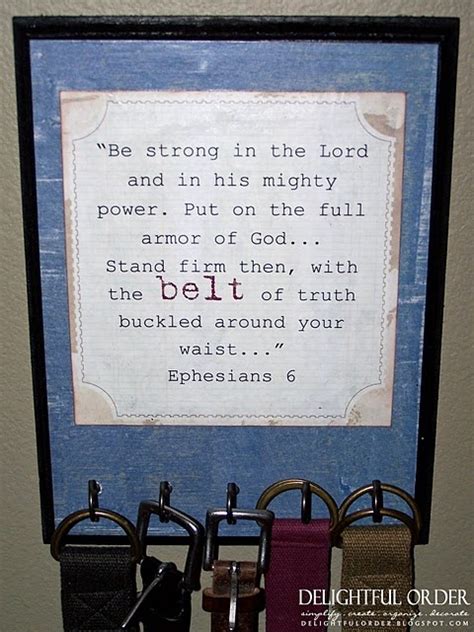 “Be strong in the Lord
and in his mighty
power. Put on the full
armor of God...
Stand firm then, with
the belt of truth
buckled around your
waist...”
Ephesians 6
DELIGHTFUL ORDER
simplify. create. organize. decorate
DELIGHTFULORDER.BLOGSPOT.COM